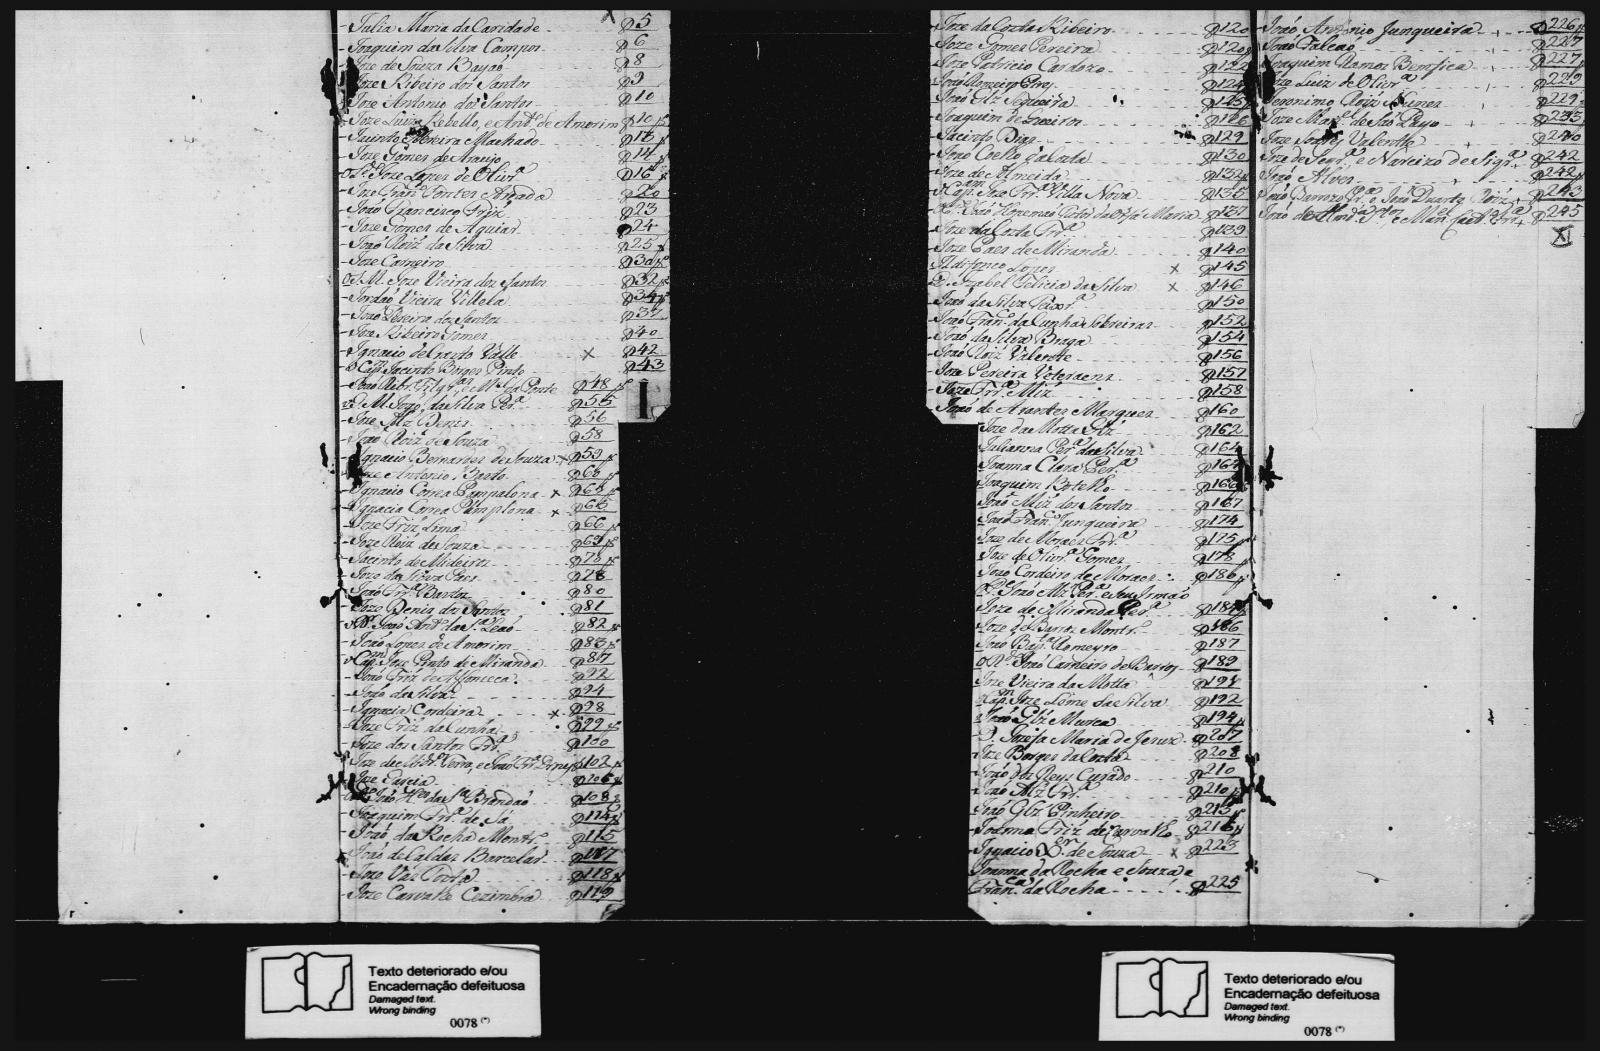 Julia Maria da Caridade p 5
Joaquim da Silva Campos p 6
Joze de Souza Bayaó p 8
Joze Ribeiro dos Santos p 9
Joze Antonio dos Santos p 10
Joze Luiz Rebello, e Antº de Amorim p 10
Jacinto Pereira Machado p 13
Joze Gomes de Araujo p 14
Joze Lopes de Olivrª p 16
Joze Franco Fontes p 20
Joaó Francisco Friz p 23
Joze Gomes de Aguiar p 24
Joaó Roiz da Silva p 25
Joze Carneiro p 30
O S. M. Joze Vieira dos Santos p 32
Jordaó Vieira Villela p 34
Joaó Pereira dos Santos p 37
Joze Ribeiro Gomes p 40
Ignacio de Crasto Valle x p 42
O Capm Jacinto Borges Pinto p 43
p 48
M. Joaó da Silva Perª p 55
Joze Miz Deniz p 56
Joaó Roiz de Souza p 58
Ignacio Bernardes de Souza x p 59
Joze Antonio Basto p 60
Ignacio Correa Pamplona x p 64
Ignacia Correa Pamplona x p 65
Joze Friz Lima p 66
Joze Roiz de Souza p 69
Jacinto de Medeiros p 78
Joze da Silva Paes p 78
Joaó Frª Bastos p 80
Joze Deniz dos Santos p 81
Joaó Antº da Sª Leaó p 82
Joaó Lopes de Amorim p 83
Capm Joze Pinto de Miranda p 87
Joaó Friz de Afonceca p 92
Joaó da Silva p 94
Ignacia Cordeira x p 98
Joze Friz da Cunha p 99
Joze dos Santos Frª p 100
p 102
Joze Garcia p 106
Brandaó p 108
Joaquim Frª de Sá p 114
Joaó da Rocha Montrº p 115
Joaó de Caldas Barcelas p 117
Joze Vaz Costa p 118
Joze Carvalho Cezimbra p 119
Joze da Costa Ribeiro p 120
Joze Gomes Pereira p 120
Joze Patricio Cardozo p 122
p 124
Joaó Glz Sequeira p 125
Joaquim de Queiros p 126
Jacinto Dias p 129
Joaó Coelho da Costa p 130
Joze de Almeida p 132
Capm Joze Frª Villa Nova p 135
p 137
Joze da Costa Frª p 139
Joze Paes de Miranda p 140
Ildefonço Lopes x p 145
D. Izabel Felicia da Silva x p 146
Joaó da Silva Teixrª p 150
Joaó Franco da Cunha Sobreiras p 152
Joaó da Silva Braga p 154
Joaó Roiz Valente p 156
Joze Pereira Veteraens p 157
Joze Frª Miz p 158
Joaó de Arantes Marques p 160
Joze da Motta p 162
Julianna Perª da Silva p 164
Joanna Clara Perª p 164
Joaquim Botelho p 166
Joaó Miz dos Santos p 167
Joaó Franco Junqueira p 174
Joze de Moraes Frª p 175
Joze de Olivrª Gomes p 178
Joaó Cordeiro de Moraes p 186
Joaó Miz Perª e seu Irmaó
Joze de Miranda Perª p 184
Joze de Barros Montrº p 186
Joaó Bapta Romeyro p 187
O Rdo Joaó Carneiro de Barros p 189
Joze Vieira da Motta p 191
Capm Joze Leme da Silva p 192
Joaó Glz Murca p 194
D. Jozefa Maria de Jesus p 207
Joze Borges da Costa p 208
Joaó dos Reys Curado p 210
Joaó Miz Frª p 210
Joaó Glz Pinheiro p 213
Joanna Friz de Carvalho p 216
Ignacio de Souza x p 223
Joanna da Rocha e Souza e
Franca da Rocha p 225
Joaó Antonio Junqueira p 226
Joaó Falcaó p 227
Joaquim Ramos Bemfica p 227
Joze Luiz de Olivrª p 229
Jeronimo Roiz Nunes p 229
Joze p 235
Joze Valente p 240
Joze de Segrª e Narcizo de Sigrª p 242
Joaó Alves p 242
Joaó Barrozo Prª, e Joaó Duarte Roiz p 243
p 245
XI
I
Texto deteriorado e/ou
Encadernação defeituosa
Damaged text.
Wrong binding
0078 (*)
Texto deteriorado e/ou
Encadernação defeituosa
Damaged text.
Wrong binding
0078 (*)